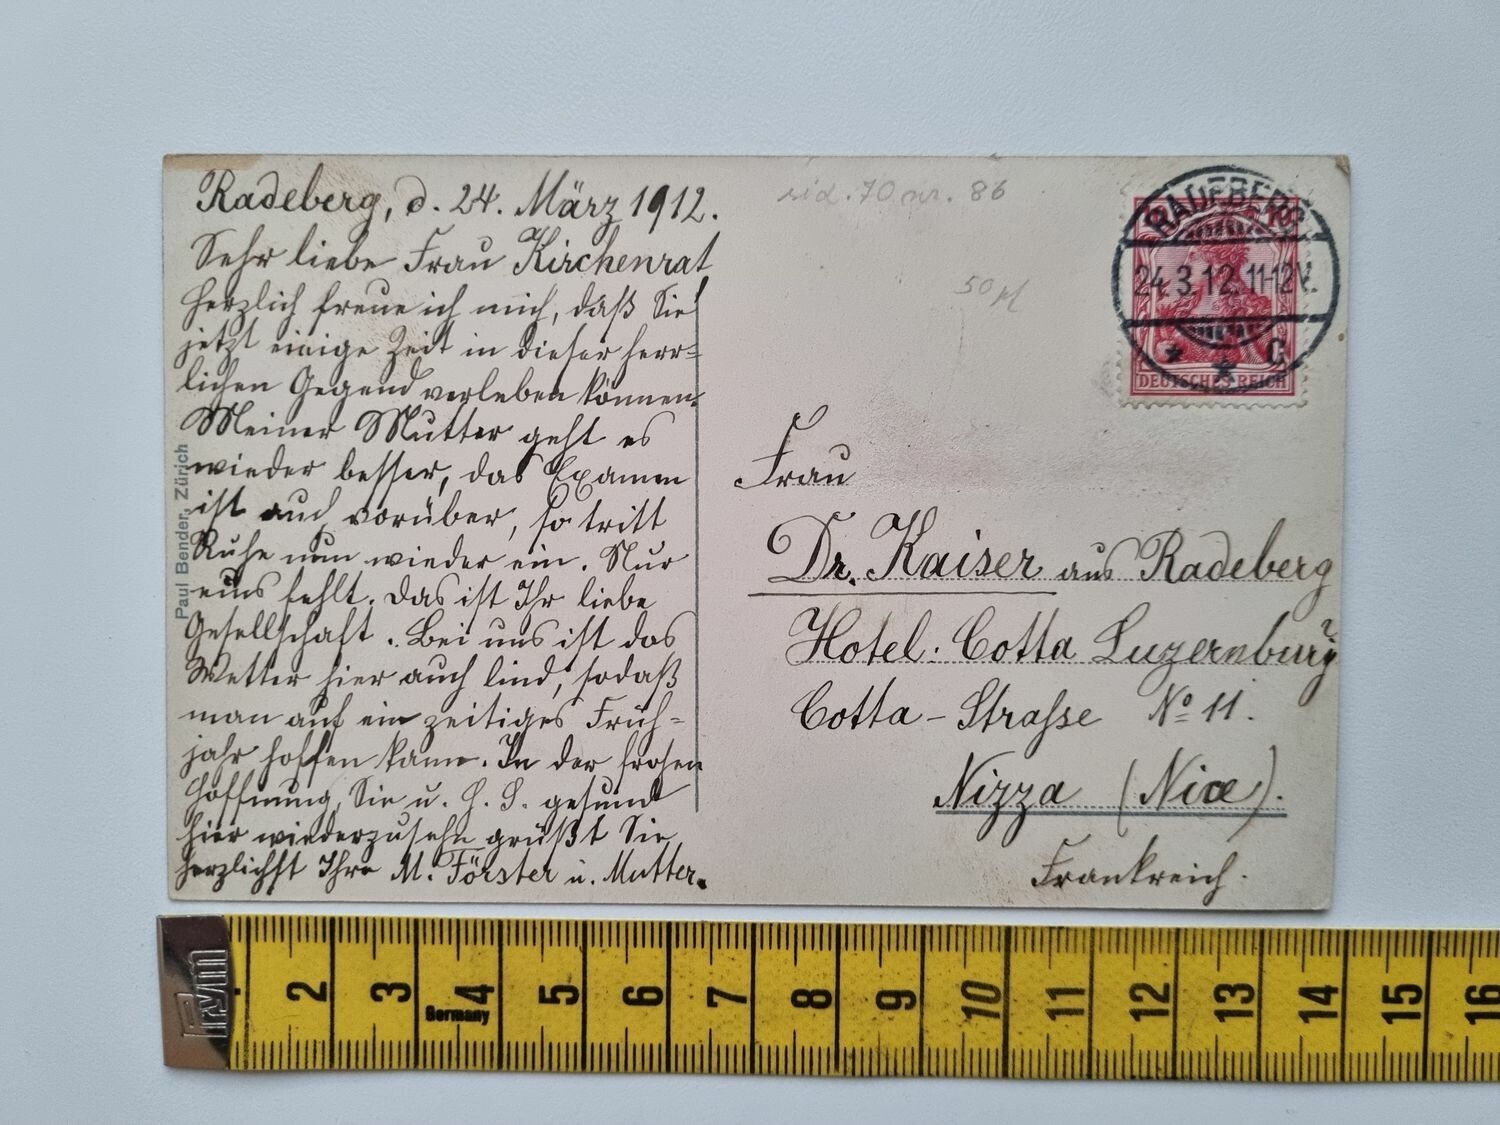 Radeberg, d. 24. März 1912.
Sehr liebe Frau Kirchenrat
Herzlich freue ich mich, daß Sie
jetzt einige Zeit in dieser herr=
lichen Gegend verleben können.
Meiner Mutter geht es
wieder besser, das Examen
ist auch vorüber, so tritt
Ruhe nun wieder ein. Nur
eins fehlt. Das ist Ihr liebe
Gesellschaft. Bei uns ist das
Wetter hier auch lind, sodaß
man auf ein zeitiges Früh=
jahr hoffen kann. In der frohen
Hoffnung, Sie u. H. S. gesund
hier wiederzusehn grüßt Sie
herzlichst Ihre M. Förster u. Mutter.
Paul Bender, Zürich
70 nr. 86
50
RADEBERG
24.3.12.11-12V.
* * C
10
DEUTSCHES REICH
Frau
Dr. Kaiser aus Radeberg
Hotel. Cotta Luzernburg
Cotta-Straße No 11.
Nizza (Nice).
Frankreich.
Prym
2 3 4 5 6 7 8 9 10 11 12 13 14 15 16
Germany